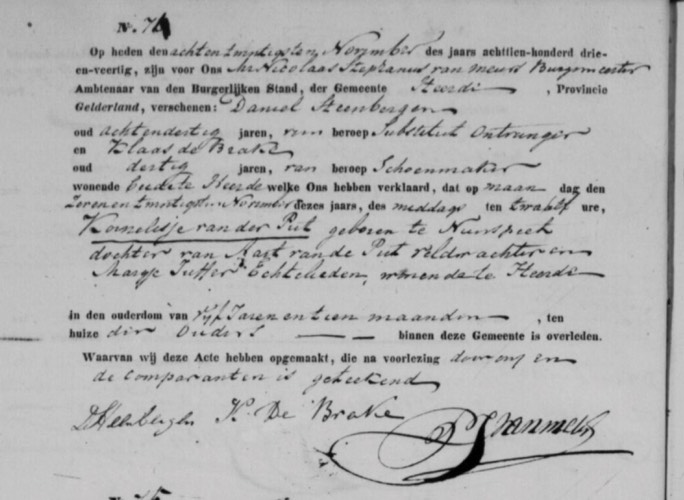 No. 74
Op heden den achtentwintigsten November des jaars achttien-honderd drie-
en-veertig, zijn voor Ons Mr Nicolaas Stephanus van Meurs Burgemeester
Ambtenaar van den Burgerlijken Stand, der Gemeente Heerde, Provincie
Gelderland, verschenen: Daniel Steenbergen
oud achtendertig jaren, van beroep Substituut Ontvanger
en Klaas de Brake
oud dertig jaren, van beroep Schoenmaker
wonende beide te Heerde welke Ons hebben verklaard, dat op maan dag den
Zevenentwintigsten November dezes jaars, des middags ten twaalf ure,
Kornelisje van der Put geboren te Nunspeet
dochter van Aart van de Put veldwachter en
Marye Juffer Echtelieden, wonende te Heerde
in den ouderdom van vijf Jaren en tien maanden, ten
huize der Ouders binnen deze Gemeente is overleden.
Waarvan wij deze Acte hebben opgemaakt, die na voorlezing door ons en
de comparanten is geteekend
DSteenbergen K. De Brake vanmeurs